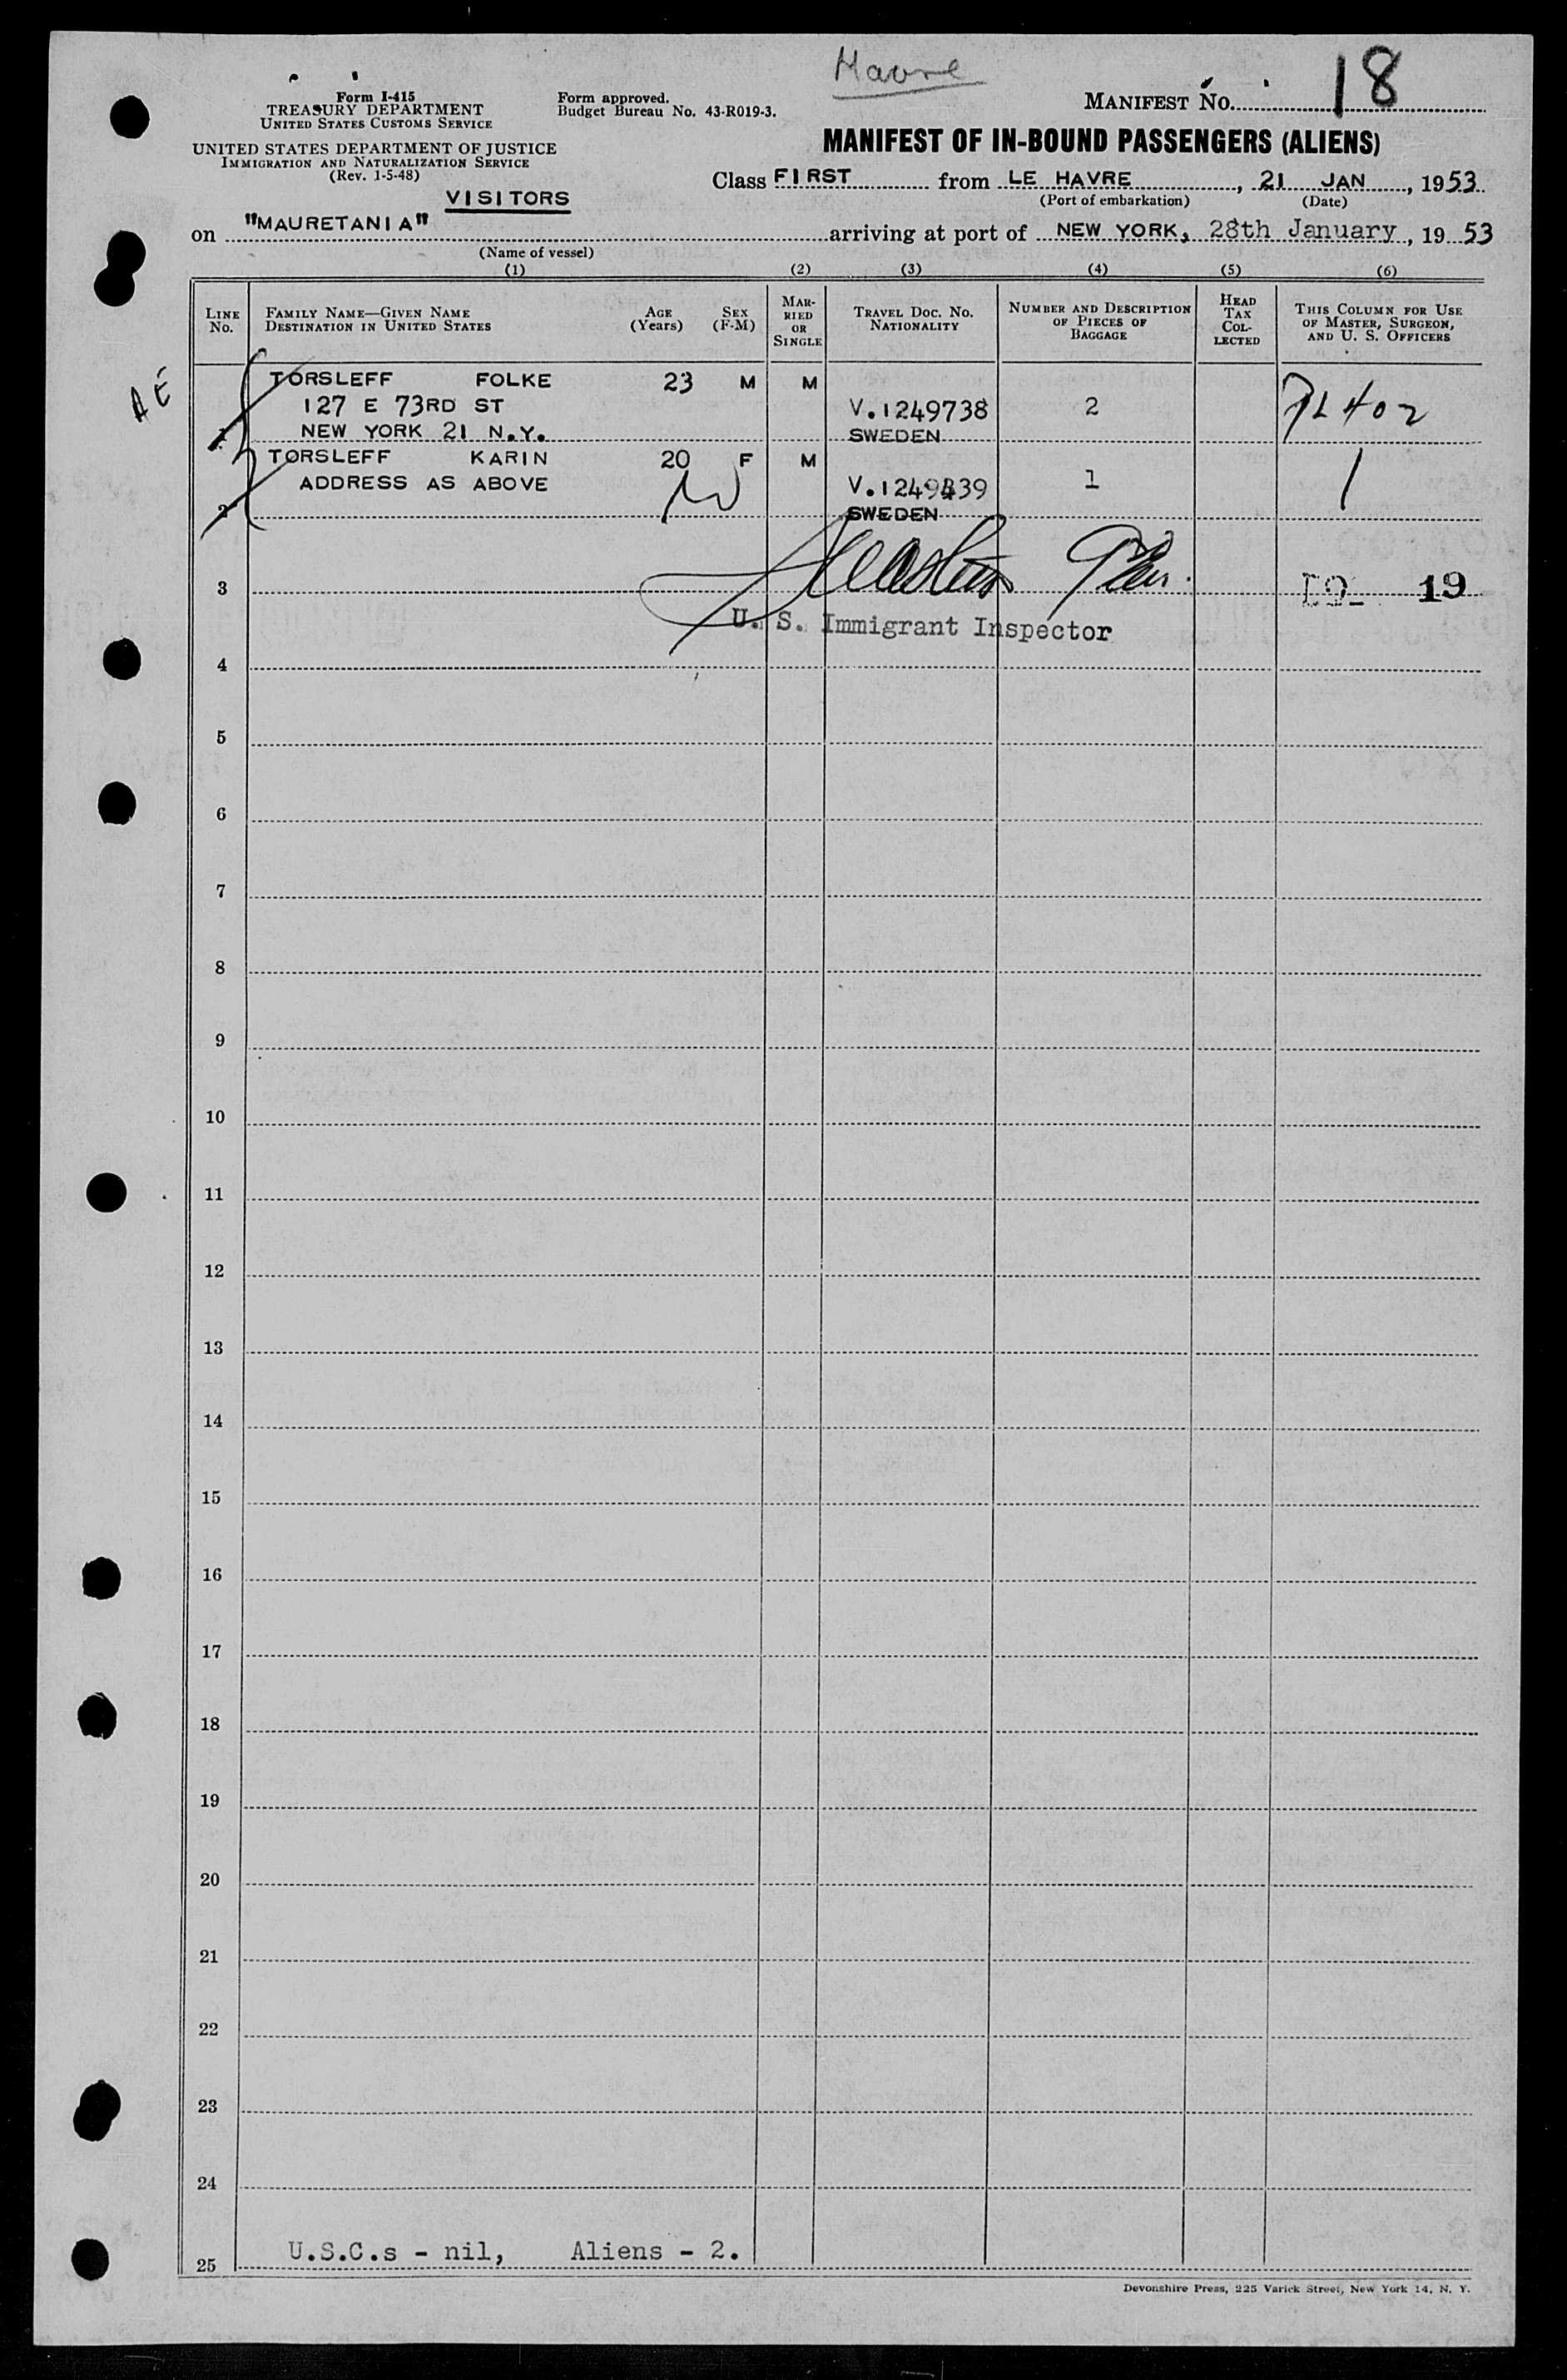 Havre
Form I-415
TREASURY DEPARTMENT
UNITED STATES CUSTOMS SERVICE
Form approved.
Budget Bureau No. 43-R019-3.
MANIFEST NO. 18
UNITED STATES DEPARTMENT OF JUSTICE
IMMIGRATION AND NATURALIZATION SERVICE
(Rev. 1-5-48)
MANIFEST OF IN-BOUND PASSENGERS (ALIENS)
Class FIRST from LE HAVRE, 21 JAN, 1953
(Port of embarkation) (Date)
VISITORS
on "MAURETANIA" arriving at port of NEW YORK, 28th January, 1953
(Name of vessel)
(1) (2) (3) (4) (5) (6)
LINE No. FAMILY NAME—GIVEN NAME DESTINATION IN UNITED STATES AGE (Years) SEX (F-M) MARRIED OR SINGLE TRAVEL DOC. NO. NATIONALITY NUMBER AND DESCRIPTION OF PIECES OF BAGGAGE HEAD TAX COLLECTED THIS COLUMN FOR USE OF MASTER, SURGEON, AND U. S. OFFICERS
AE
TORSLEFF FOLKE 23 M M
127 E 73RD ST V.1249738 2
1 NEW YORK 21 N.Y. SWEDEN
TORSLEFF KARIN 20 F M
ADDRESS AS ABOVE 1
2 SWEDEN
3 19
U. S. Immigrant Inspector
4
5
6
7
8
9
10
11
12
13
14
15
16
17
18
19
20
21
22
23
24
25 U.S.C.s - nil, Aliens - 2.
Devonshire Press, 225 Varick Street, New York 14, N. Y.